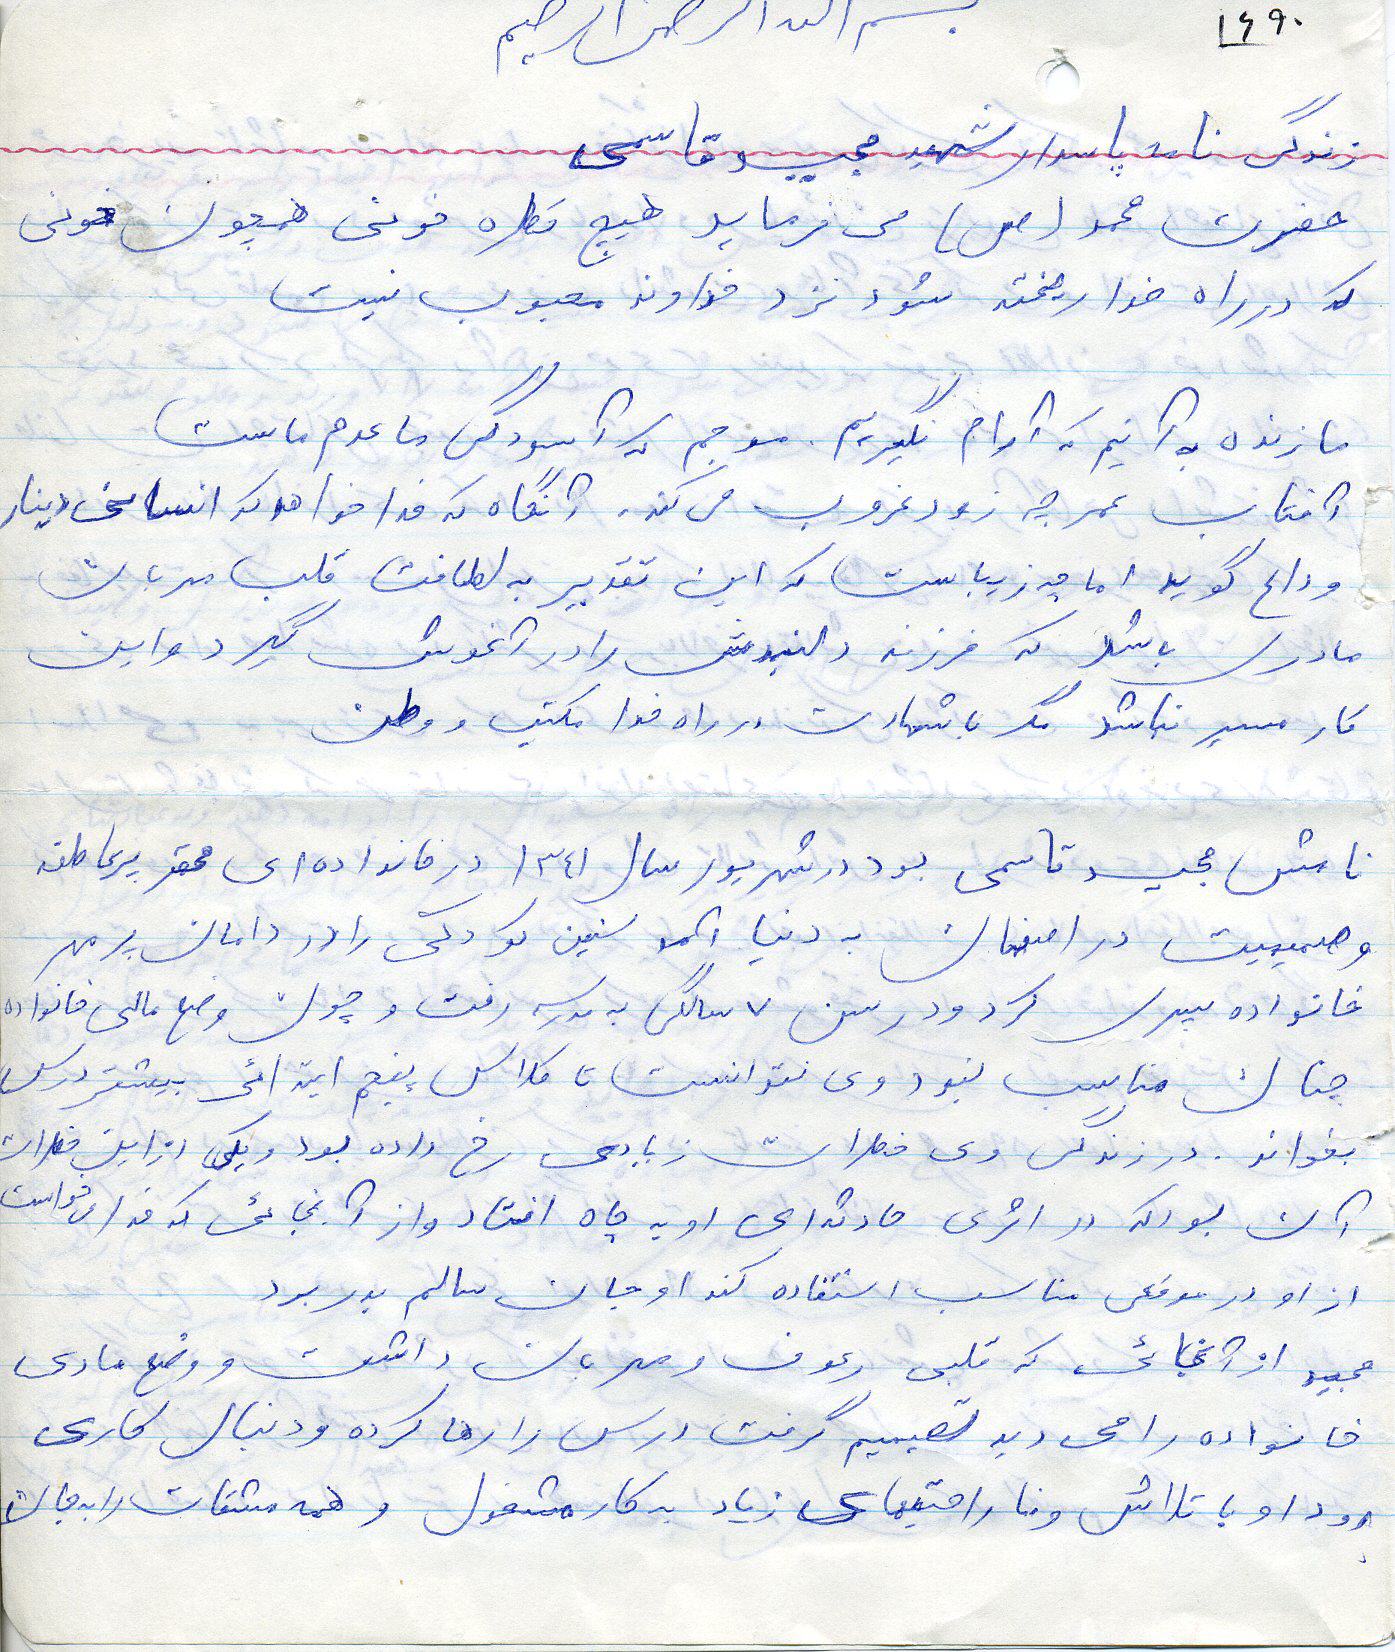 بسم الله الرحمن الرحیم
۱۶۹۰
زندگی نامه پاسدار شهید مجید قاسمی
حضرت محمد (ص) می فرماید هیچ قطره خونی همچون خونی
که در راه خدا ریخته شود نزد خداوند محبوب نیست
ما زنده به آنیم که آرام نگیریم. موجیم که آسودگی ما عدم ماست
آفتاب عمر چه زود غروب می کند. آنگاه که خدا خواهد که انسانی دنیا را
وداع گوید اما چه زیباست که این تقدیر به لطافت قلب مهربان
مادری باشد که فرزند دلبندش را در آغوش گیرد و این
کار میسر نباشد مگر با شهادت در راه خدا مکتب و وطن
نامش مجید قاسمی بود در شهریور سال ۱۳۴۱ در خانواده ای محقر پر عاطفه
و صمیمیت در اصفهان به دنیا آمد سنین کودکی را در دامان پر مهر
خانواده سپری کرد و در سن ۷ سالگی به مدرسه رفت و چون وضع مالی خانواده
چنان مناسب نبود وی نتوانست تا کلاس پنجم ابتدائی بیشتر درس
بخواند. در زندگی وی خطرات زیادی رخ داده بود و یکی از این خطرات
آن بود که در اثری حادثه ای او به چاه افتاد و از آنجائی که خدا می خواست
از او در موقعی مناسب استفاده کند او جان سالم بدر برد
مجید از آنجائی که قلبی رئوف و مهربان داشت و وضع مادی
خانواده را می دید تصمیم گرفت درس را رها کرده و دنبال کاری
رود او با تلاش و ناراحتیهای زیاد به کار مشغول و همه مشقات را به جان